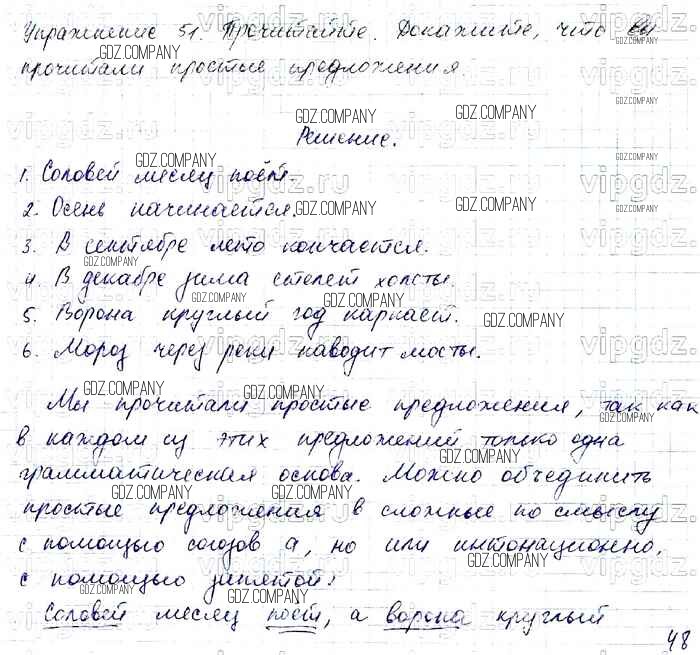 Упражнение 51. Прочитайте. Докажите, что вы
прочитали простые предложения
Решение.
1. Соловей месяц поёт.
2. Осень начинается.
3. В сентябре лето кончается.
4. В декабре зима стелет холсты.
5. Ворона круглый год каркает.
6. Мороз через реки наводит мосты.
Мы прочитали простые предложения, так как
в каждом из этих предложений только одна
грамматическая основа. Можно объединить
простые предложения в сложные по смыслу
с помощью союзов а, но или интонационно,
с помощью запятой:
Соловей месяц поёт, а ворона круглый
48